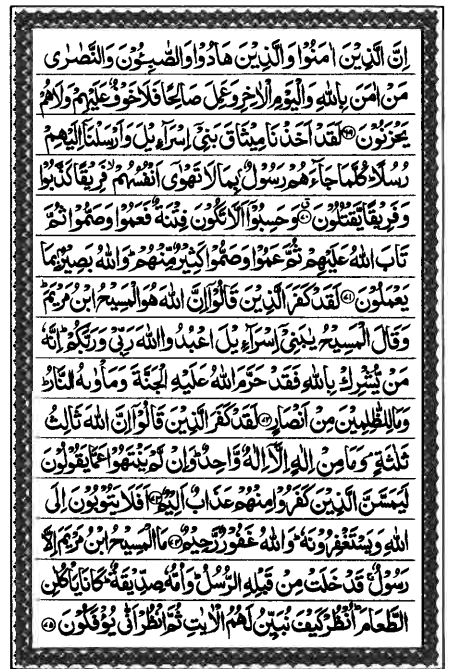 اِنَّ الَّذِيْنَ اٰمَنُوْا وَالَّذِيْنَ هَادُوْا وَالصّٰبِـُٔوْنَ وَالنَّصٰرٰى
مَنْ اٰمَنَ بِاللّٰهِ وَالْيَوْمِ الْاٰخِرِ وَعَمِلَ صَالِحًا فَلَا خَوْفٌ عَلَيْهِمْ وَلَا هُمْ
يَحْزَنُوْنَ ﴿۶۹﴾ لَقَدْ اَخَذْنَا مِيْثَاقَ بَنِيْۤ اِسْرَآءِيْلَ وَاَرْسَلْنَاۤ اِلَيْهِمْ
رُسُلًاؕ كُلَّمَا جَآءَهُمْ رَسُوْلٌۢ بِمَا لَا تَهْوٰۤى اَنْفُسُهُمْۙ فَرِيْقًا كَذَّبُوْا
وَفَرِيْقًا يَّقْتُلُوْنَ ﴿۷۰﴾ وَحَسِبُوْۤا اَلَّا تَكُوْنَ فِتْنَةٌ فَعَمُوْا وَصَمُّوْا ثُمَّ
تَابَ اللّٰهُ عَلَيْهِمْ ثُمَّ عَمُوْا وَصَمُّوْا كَثِيْرٌ مِّنْهُمْؕ وَاللّٰهُ بَصِيْرٌۢ بِمَا
يَعْمَلُوْنَ ﴿۷۱﴾ لَقَدْ كَفَرَ الَّذِيْنَ قَالُوْۤا اِنَّ اللّٰهَ هُوَ الْمَسِيْحُ ابْنُ مَرْيَمَؕ
وَقَالَ الْمَسِيْحُ يٰبَنِيْۤ اِسْرَآءِيْلَ اعْبُدُوا اللّٰهَ رَبِّيْ وَرَبَّكُمْؕ اِنَّهٗ
مَنْ يُّشْرِكْ بِاللّٰهِ فَقَدْ حَرَّمَ اللّٰهُ عَلَيْهِ الْجَنَّةَ وَمَاْوٰىهُ النَّارُؕ
وَمَا لِلظّٰلِمِيْنَ مِنْ اَنْصَارٍ ﴿۷۲﴾ لَقَدْ كَفَرَ الَّذِيْنَ قَالُوْۤا اِنَّ اللّٰهَ ثَالِثُ
ثَلٰثَةٍۘ وَمَا مِنْ اِلٰهٍ اِلَّاۤ اِلٰهٌ وَّاحِدٌؕ وَاِنْ لَّمْ يَنْتَهُوْا عَمَّا يَقُوْلُوْنَ
لَيَمَسَّنَّ الَّذِيْنَ كَفَرُوْا مِنْهُمْ عَذَابٌ اَلِيْمٌ ﴿۷۳﴾ اَفَلَا يَتُوْبُوْنَ اِلَى
اللّٰهِ وَيَسْتَغْفِرُوْنَهٗؕ وَاللّٰهُ غَفُوْرٌ رَّحِيْمٌ ﴿۷۴﴾ مَا الْمَسِيْحُ ابْنُ مَرْيَمَ اِلَّا
رَسُوْلٌۚ قَدْ خَلَتْ مِنْ قَبْلِهِ الرُّسُلُؕ وَاُمُّهٗ صِدِّيْقَةٌؕ كَانَا يَاْكُلٰنِ
الطَّعَامَؕ اُنْظُرْ كَيْفَ نُبَيِّنُ لَهُمُ الْاٰيٰتِ ثُمَّ انْظُرْ اَنّٰى يُؤْفَكُوْنَ ﴿۷۵﴾